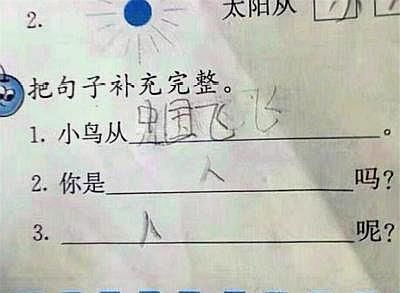 2. 太阳从
把句子补充完整。
1. 小鸟从中国飞飞。
2. 你是人吗?
3. 人呢?